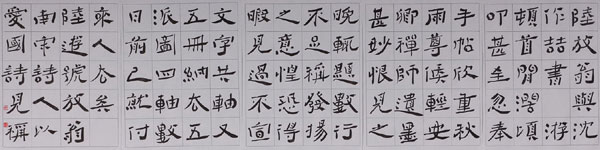 陸放翁與沈
作喆書 游
頓首閒濶頃
叩甚至忽奉
手帖欣重秋
雨尊候輕安
卿禪師遺墨
甚妙恨見之
晚輒題數行
不足稱發揚
之意惶恐得
暇見過不宣
文字共軸又
五冊五
派圖四軸數
日前已就付
來人去矣
陸遊號放翁
南宋詩人以
愛國詩見稱